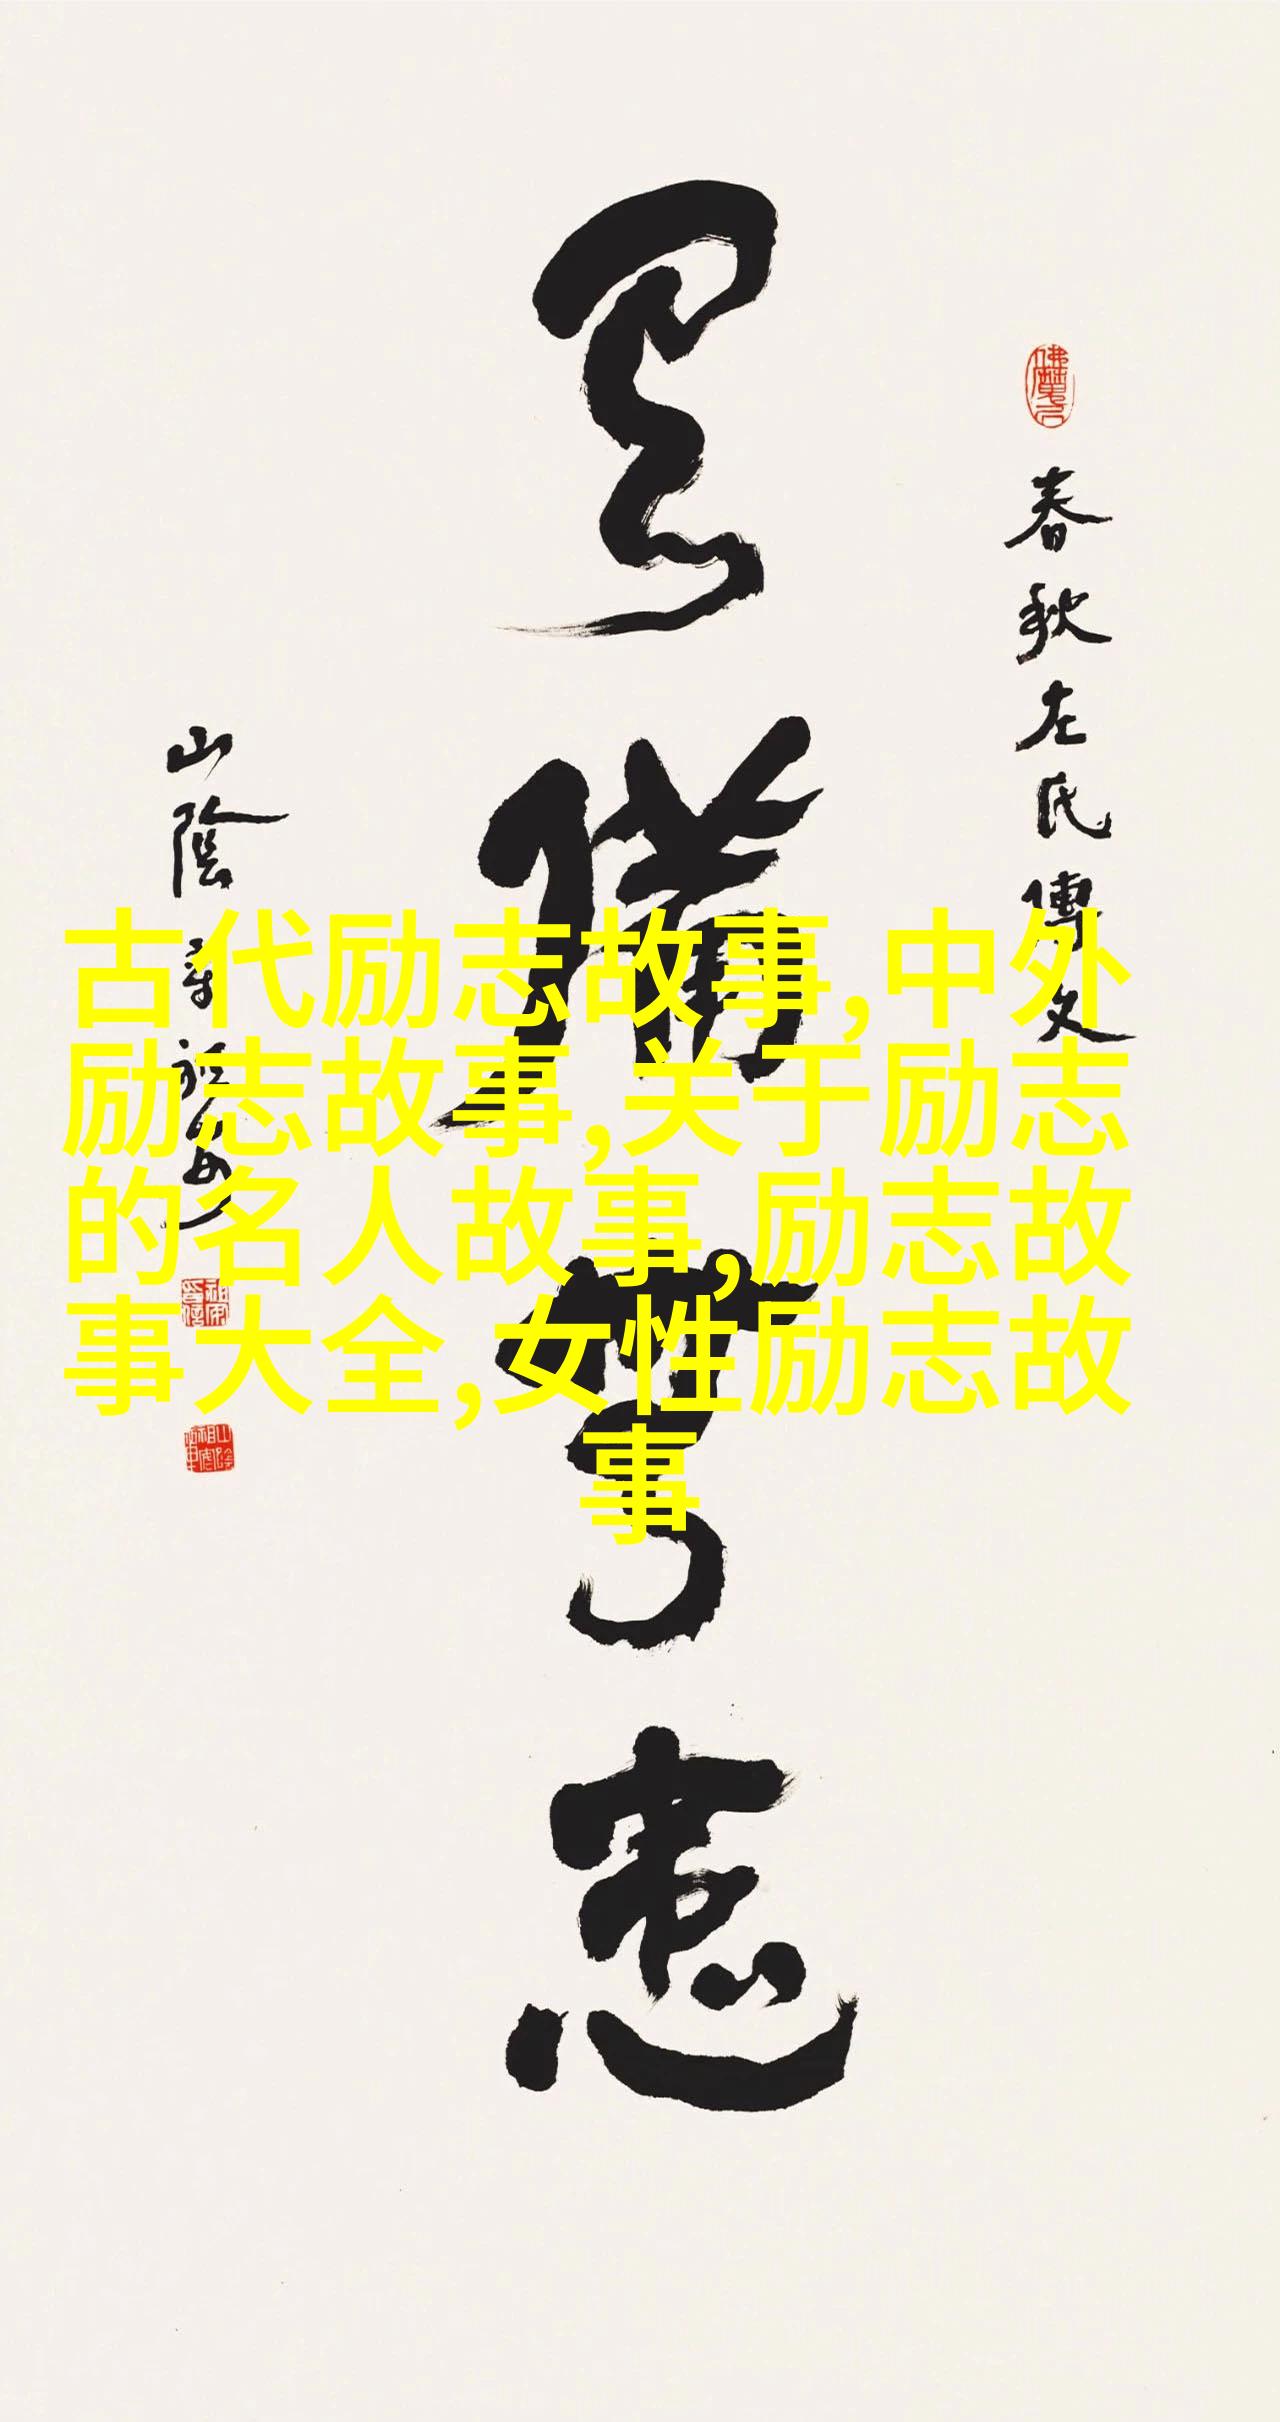 春秋左氏傳文
居備無患
山陰
古代励志故事,中外
励志故事,关于励志
的名人故事,励志故
事大全,女性励志故
事